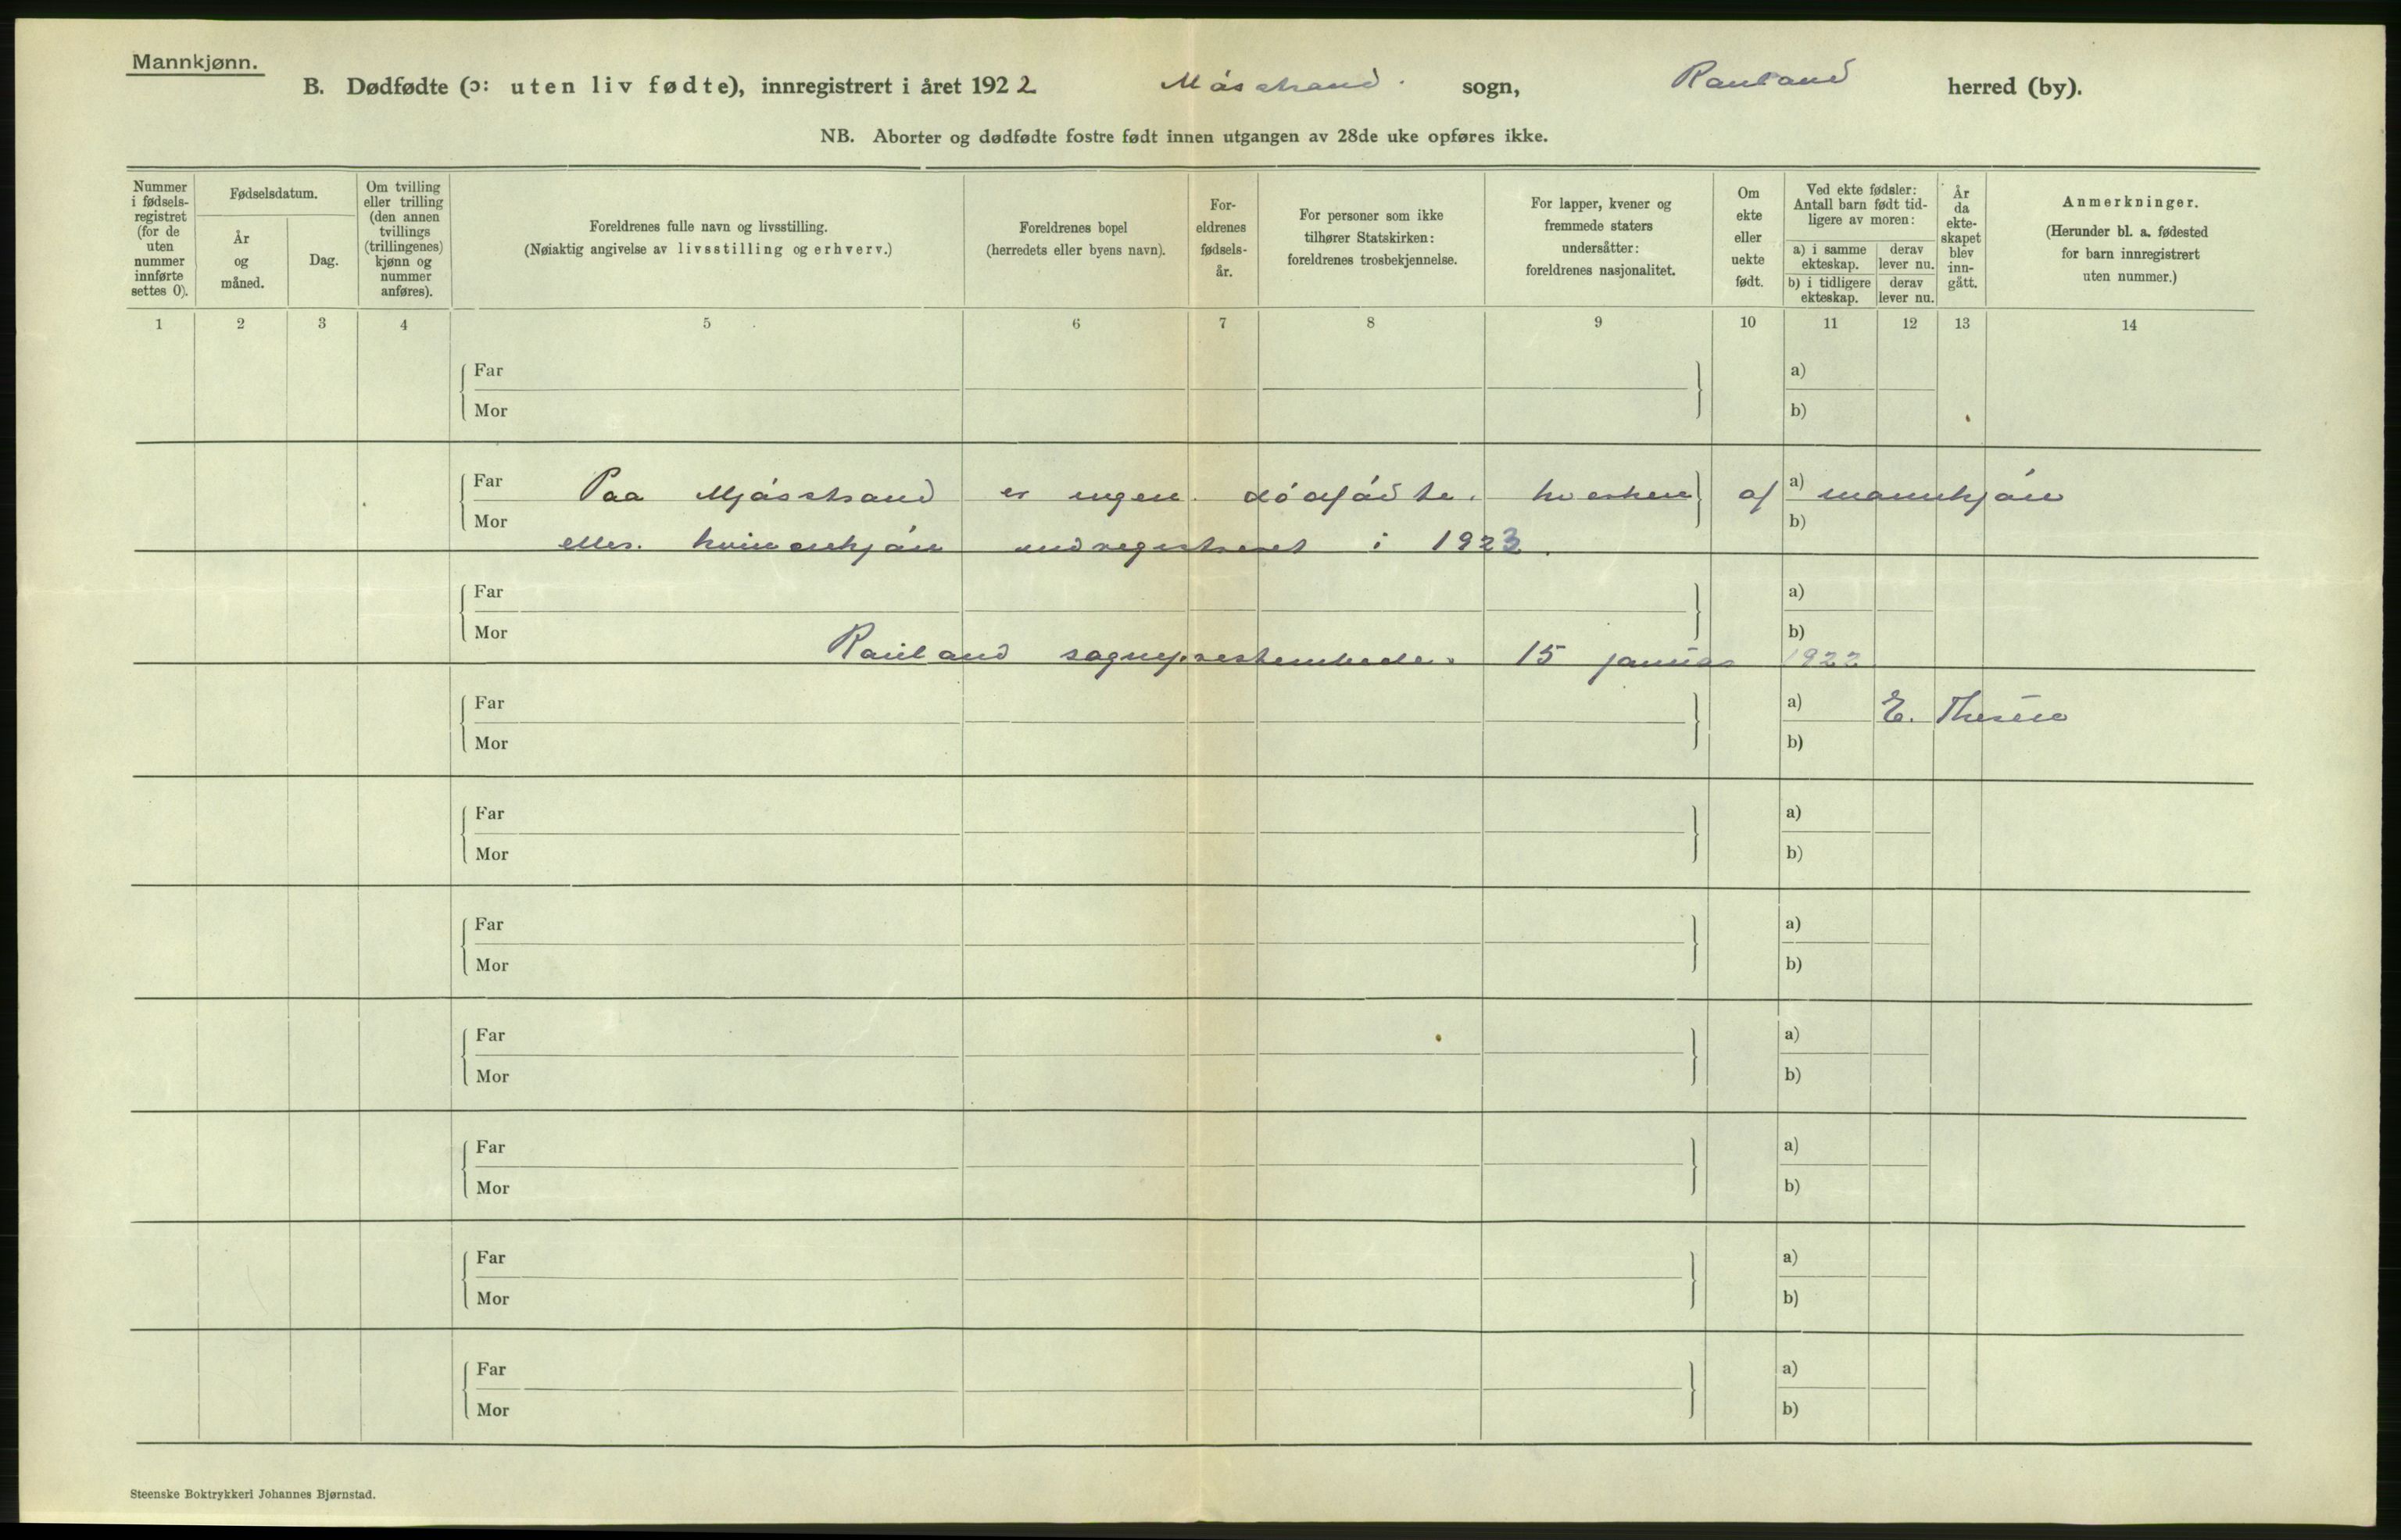 Mannkjønn.
B. Dødfødte (ɔ: uten liv fødte), innregistrert i året 1922 Møsstrand sogn, Rauland herred (by).
NB. Aborter og dødfødte fostre født innen utgangen av 28de uke opføres ikke.
Nummer i fødsels-registret (for de uten nummer innførte settes 0).
Fødselsdatum.
År og måned.
Dag.
Om tvilling eller trilling (den annen tvillings (trillingenes) kjønn og nummer anføres).
Foreldrenes fulle navn og livsstilling.
(Nøiaktig angivelse av livsstilling og erhverv.)
Foreldrenes bopel
(herredets eller byens navn).
For-eldrenes fødsels-år.
For personer som ikke tilhører Statskirken: foreldrenes trosbekjennelse.
For lapper, kvener og fremmede staters undersåtter: foreldrenes nasjonalitet.
Om ekte eller uekte født.
Ved ekte fødsler: Antall barn født tid-ligere av moren:
a) i samme ekteskap. derav lever nu.
b) i tidligere ekteskap. derav lever nu.
År da ekte-skapet blev inn-gått.
Anmerkninger.
(Herunder bl. a. fødested for barn innregistrert uten nummer.)
1 2 3 4 5 6 7 8 9 10 11 12 13 14
Far a)
Mor b)
Far Paa Mjøsstrand er ingen dødfødte hverken af a) mannkjøn
Mor b)
eller kvinnekjøn indregistreret i 1923.
Far a)
Mor b)
Rauland sogneprestembede. 15 januar 1922
Far a) E. Thesen
Mor b)
Far a)
Mor b)
Far a)
Mor b)
Far a)
Mor b)
Far a)
Mor b)
Far a)
Mor b)
Far a)
Mor b)
Steenske Boktrykkeri Johannes Bjørnstad.